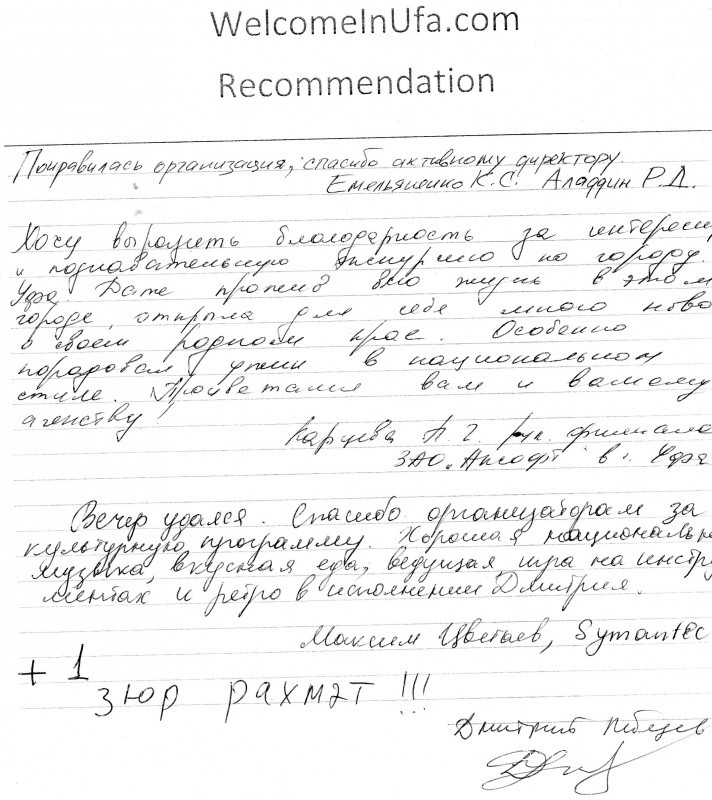 WelcomeInUfa.com
Recommendation
Понравилась организация, спасибо активному директору.
Емельяненко К.С. Аладдин Р.Д.
Хочу выразить благодарность за интересн
и познавательную экскурсию по городу.
Уфа. Даже прожив всю жизнь в этом
городе, открыла для себя много ново
о своем родном крае. Особенно
порадовал ужин в национальном
стиле. Процветания вам и вашему
агенству!
Карцева Л. Г. рук. филиала
ЗАО "Аксофт" в г. Уфа
Вечер удался. Спасибо организаторам за
культурную программу. Хорошая национальна
музыка, вкусная еда, ведущая игра на инстру
ментах и ретро в исполнении Дмитрия.
Максим Цветаев, Symantec
+ 1
зюр рахмэт !!!
Дмитрий